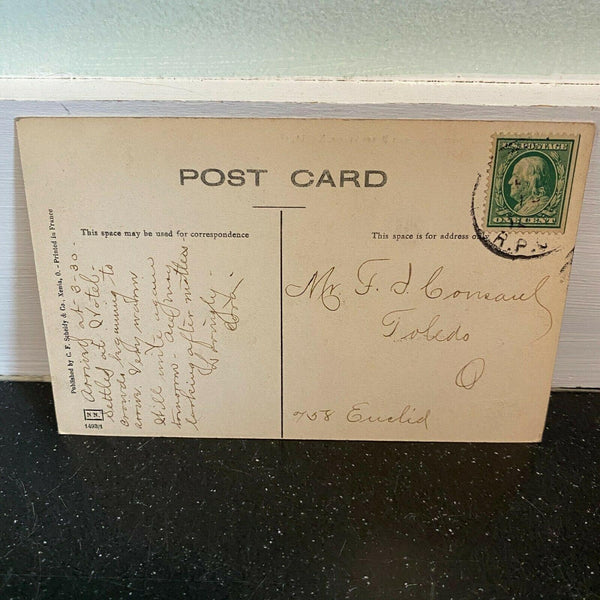 POST CARD
U.S. POSTAGE
ONE CENT
R.P.O
This space may be used for correspondence
This space is for address o
Published by C. F. Scheidy & Co., Xenia, O. - Printed in France
N.N.
1493/1
Arrived at 3-30-
settled at Hotel-
crowds beginning to
arrive. Very warm
Will write again
tomorrow - and
looking after matters-
Lovingly-
Mr. F. J. Consaul
Toledo
O
758 Euclid